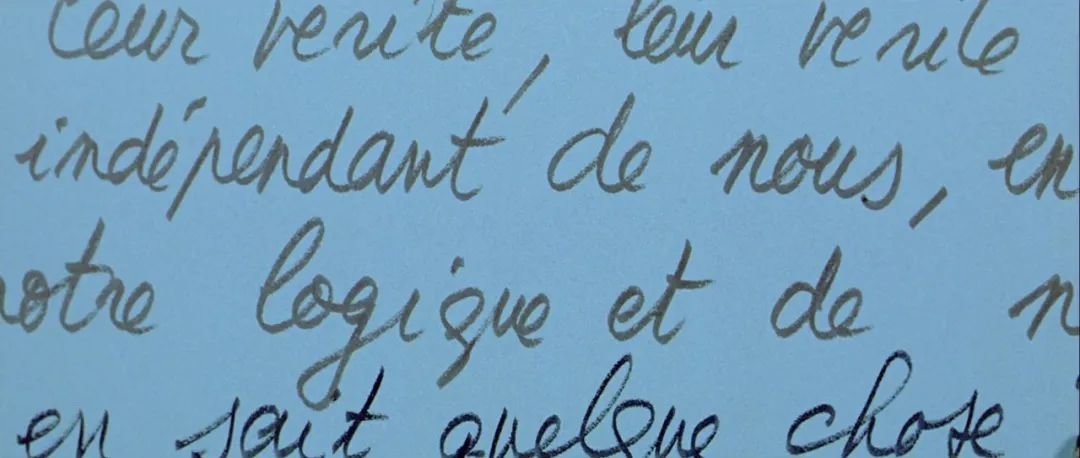 leur verité, leur verité
indépendant de nous, en
notre logique et de n
en sait quelque chose